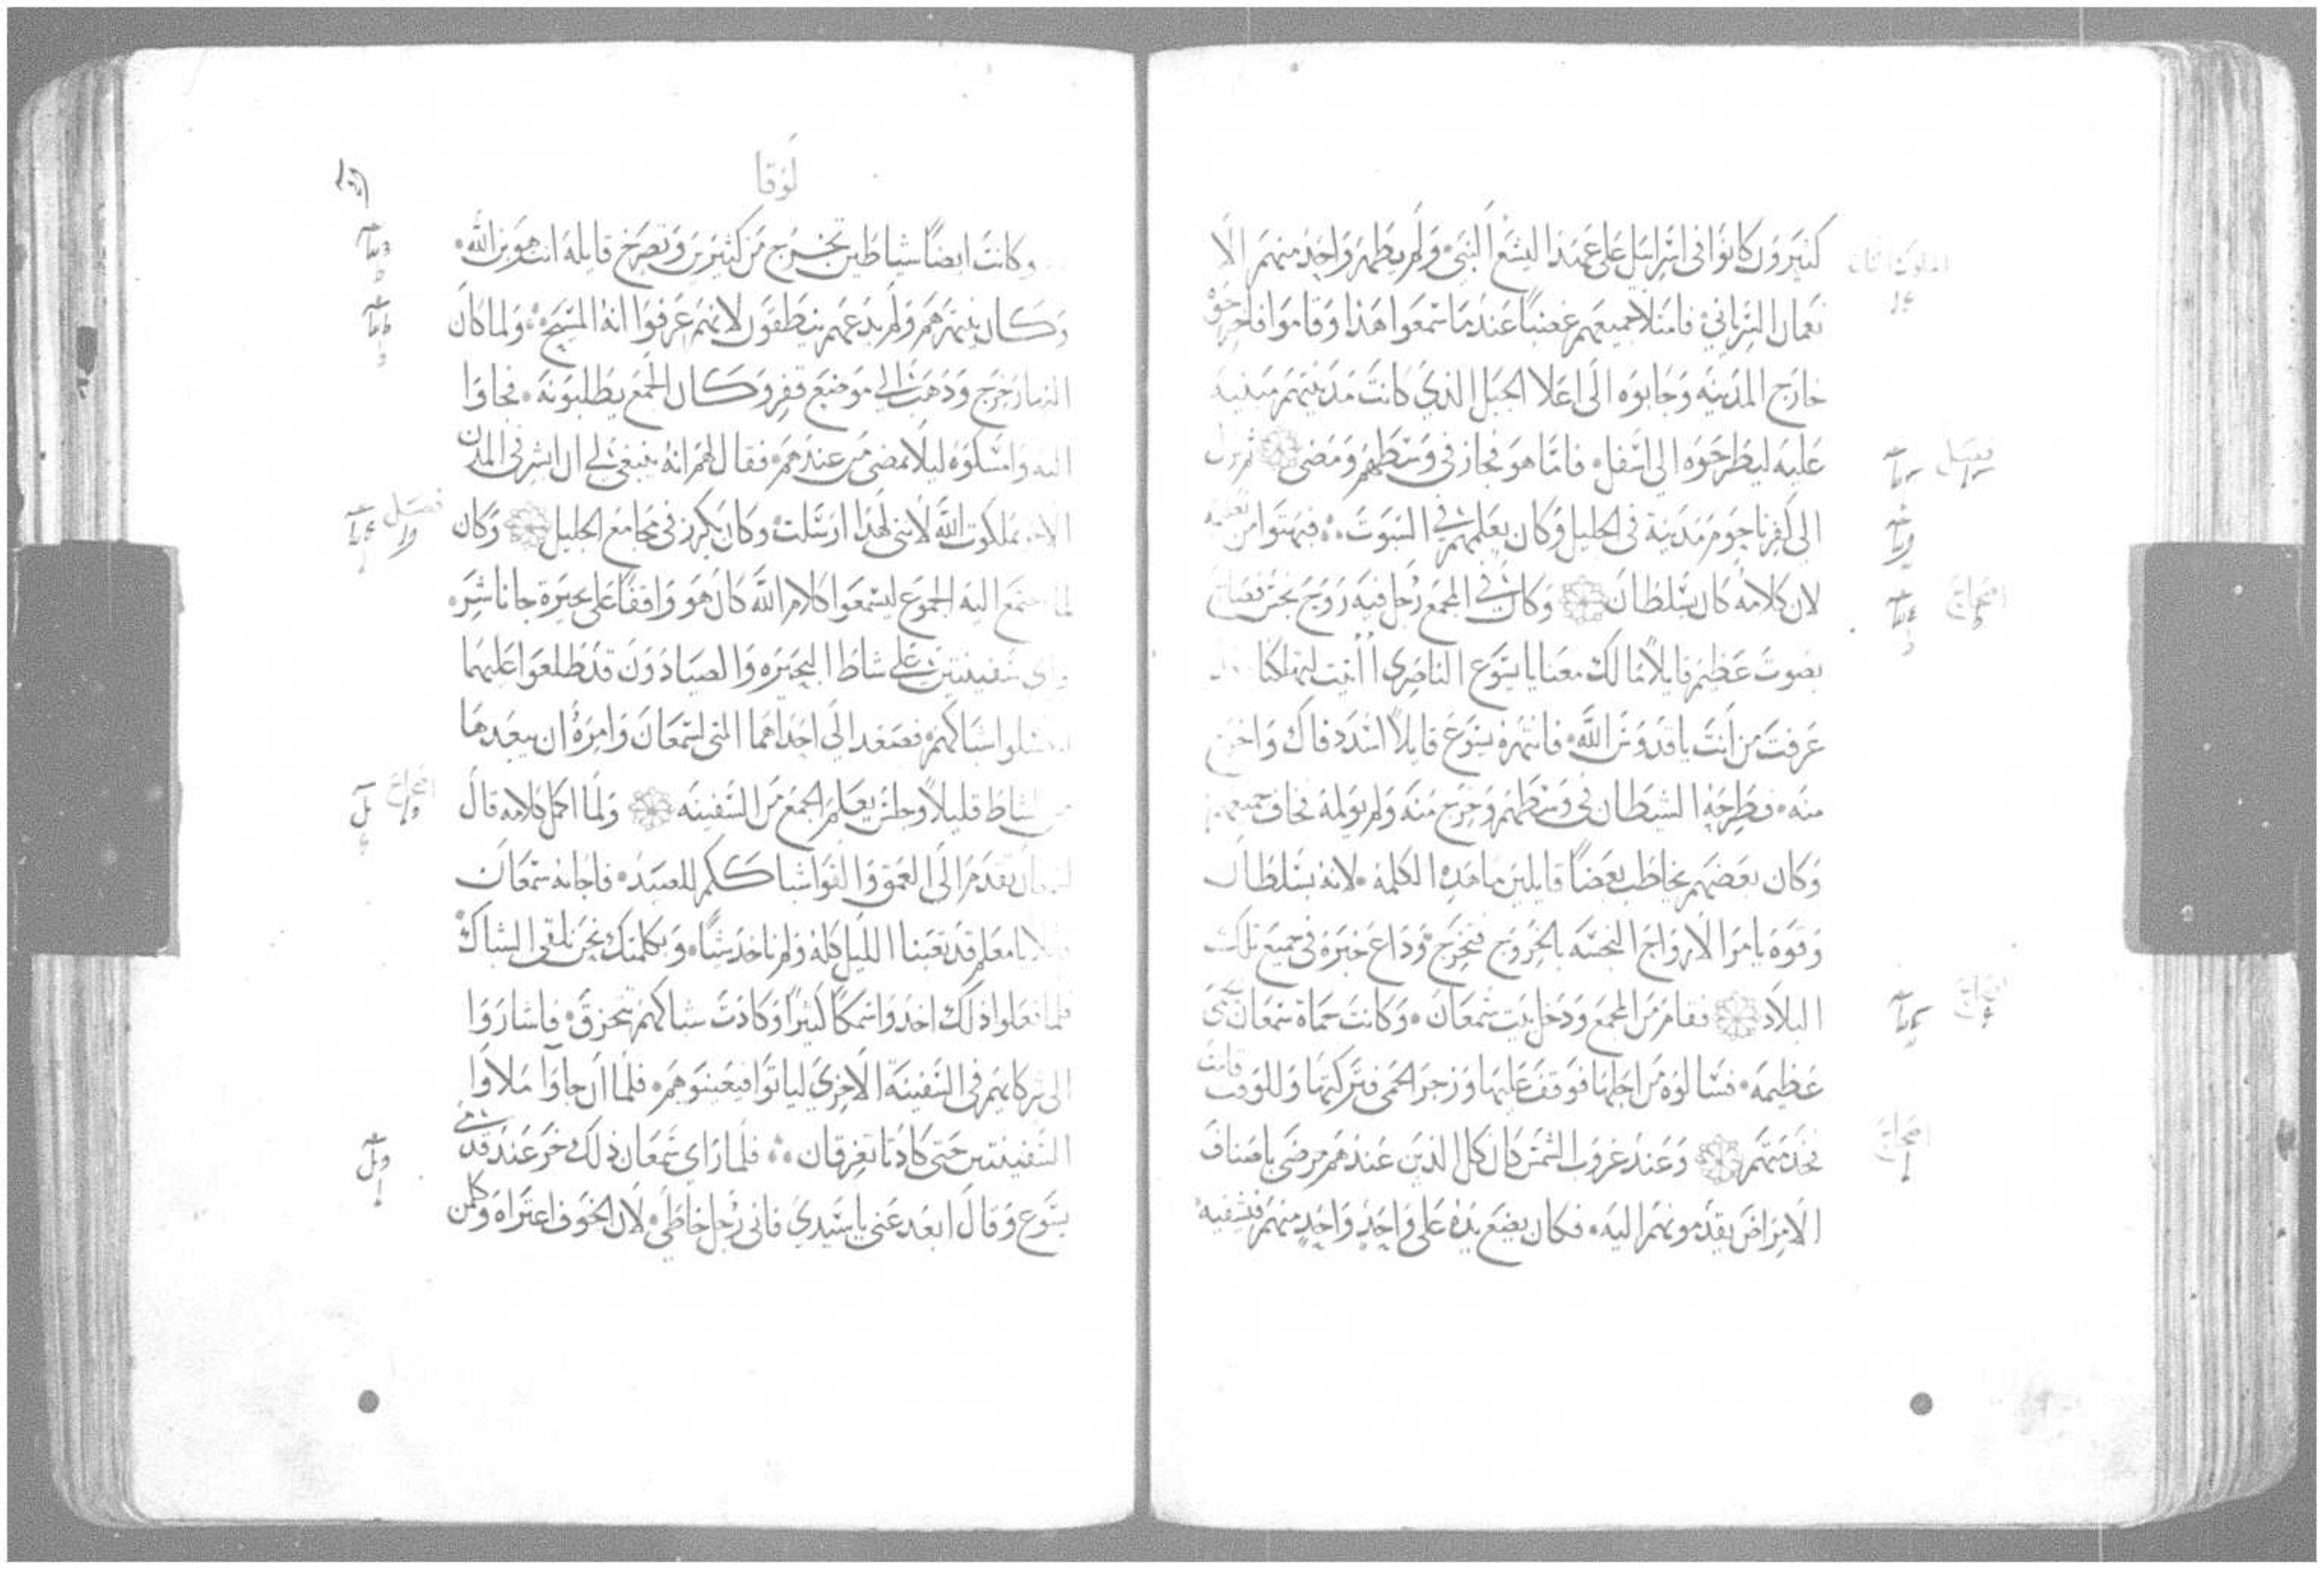 كثيرون كانوا في اسراييل على عهد اليشع النبي ولم يطهر واحد منهم الا
نعمان السرياني فامتلا جميعهم غضبًا عندما سمعوا هذا وقاموا فاخرجوه
خارج المدينه وجابوه الى اعلا الجبل الذي كانت مدينتهم مبنيه
عليه ليطرحوه الى اسفل فاما هو فجاز في وسطهم ومضى ثم نزل
الى كفرناحوم مدينة في الجليل وكان يعلمهم في السبوت فبهتوا من تعليمه
لان كلامه كان بسلطان وكان في المجمع رجل فيه روح نجس فصاح
بصوت عظيم قايلاً ما لك معنا يا يسوع الناصرى أأتيت لتهلكنا
عرفت من انت يا قدوس الله فانتهره يسوع قايلاً اسدد فاك واخرج
منه فطرحه الشيطان في وسطهم وخرج منه ولم يولمه فخاف جميعهم
وكان بعضهم يخاطب بعضًا قايلين ما هذه الكلمه لانه بسلطان
وقوه يامر الارواح النجسه بالخروج فتخرج وذاع خبره في جميع تلك
البلاد فقام من المجمع ودخل بيت سمعان وكانت حماة سمعان بحمى
عظيمه فسالوه من اجلها فوقف عليها وزجر الحمى فتركتها وللوقت قامت
تخدمهم وعند غروب الشمس كان كل الذين عندهم مرضى باصناف
الامراض يقدمونهم اليه فكان يضع يده على واحدٍ واحدٍ منهم فيشفيه
فصل
اصحاح
اصحاح
اصحاح
لوقا
وكانت ايضًا شياطين تخرج من كثيرين وتصرخ قايلة انت هو بن الله
وكان ينتهرهم ولم يدعهم ينطقون لانهم عرفوا انه المسيح ولما كان
النهار خرج وذهب الى موضع قفر وكان الجمع يطلبونه فجاوا
اليه وامسكوه ليلا يمضى من عندهم فقال لهم انه ينبغي لي ان ابشر في المدن
الاخر بملكوت الله لانني لهذا ارسلت وكان يكرز في مجامع الجليل وكان
لما اجتمع اليه الجموع ليسمعوا كلام الله كان هو واقفًا على بحيرة جاناشر
وراى سفينتين على شاطا البحيره والصيادون قد طلعوا عليهما
ليغسلوا شباكهم فصعد الى احداهما التي لسمعان وامره ان يبعدها
من الشاط قليلاً وجلس يعلم الجمع من السفينه ولما اكمل كلامه قال
لسمعان تقدم الى العمق والقوا شباككم للصيد فاجابه سمعان
قايلا يا معلم قد تعبنا الليل كله ولم ناخذ شيًا وبكلمتك نحن نلقي الشباك
فلما فعلوا ذلك اخذوا سمكًا كثيرًا وكادت شباكهم تتخرق فاشاروا
الى شركايهم في السفينة الاخرى لياتوا فيعينوهم فلما ان جاوا ملاوا
السفينتين حتى كادتا تغرقان فلما راى سمعان ذلك خر عند قدمي
يسوع وقال ابعد عني يا سيدي فاني رجل خاطي لان الخوف اعتراه وكلمن
فصل
اصحاح